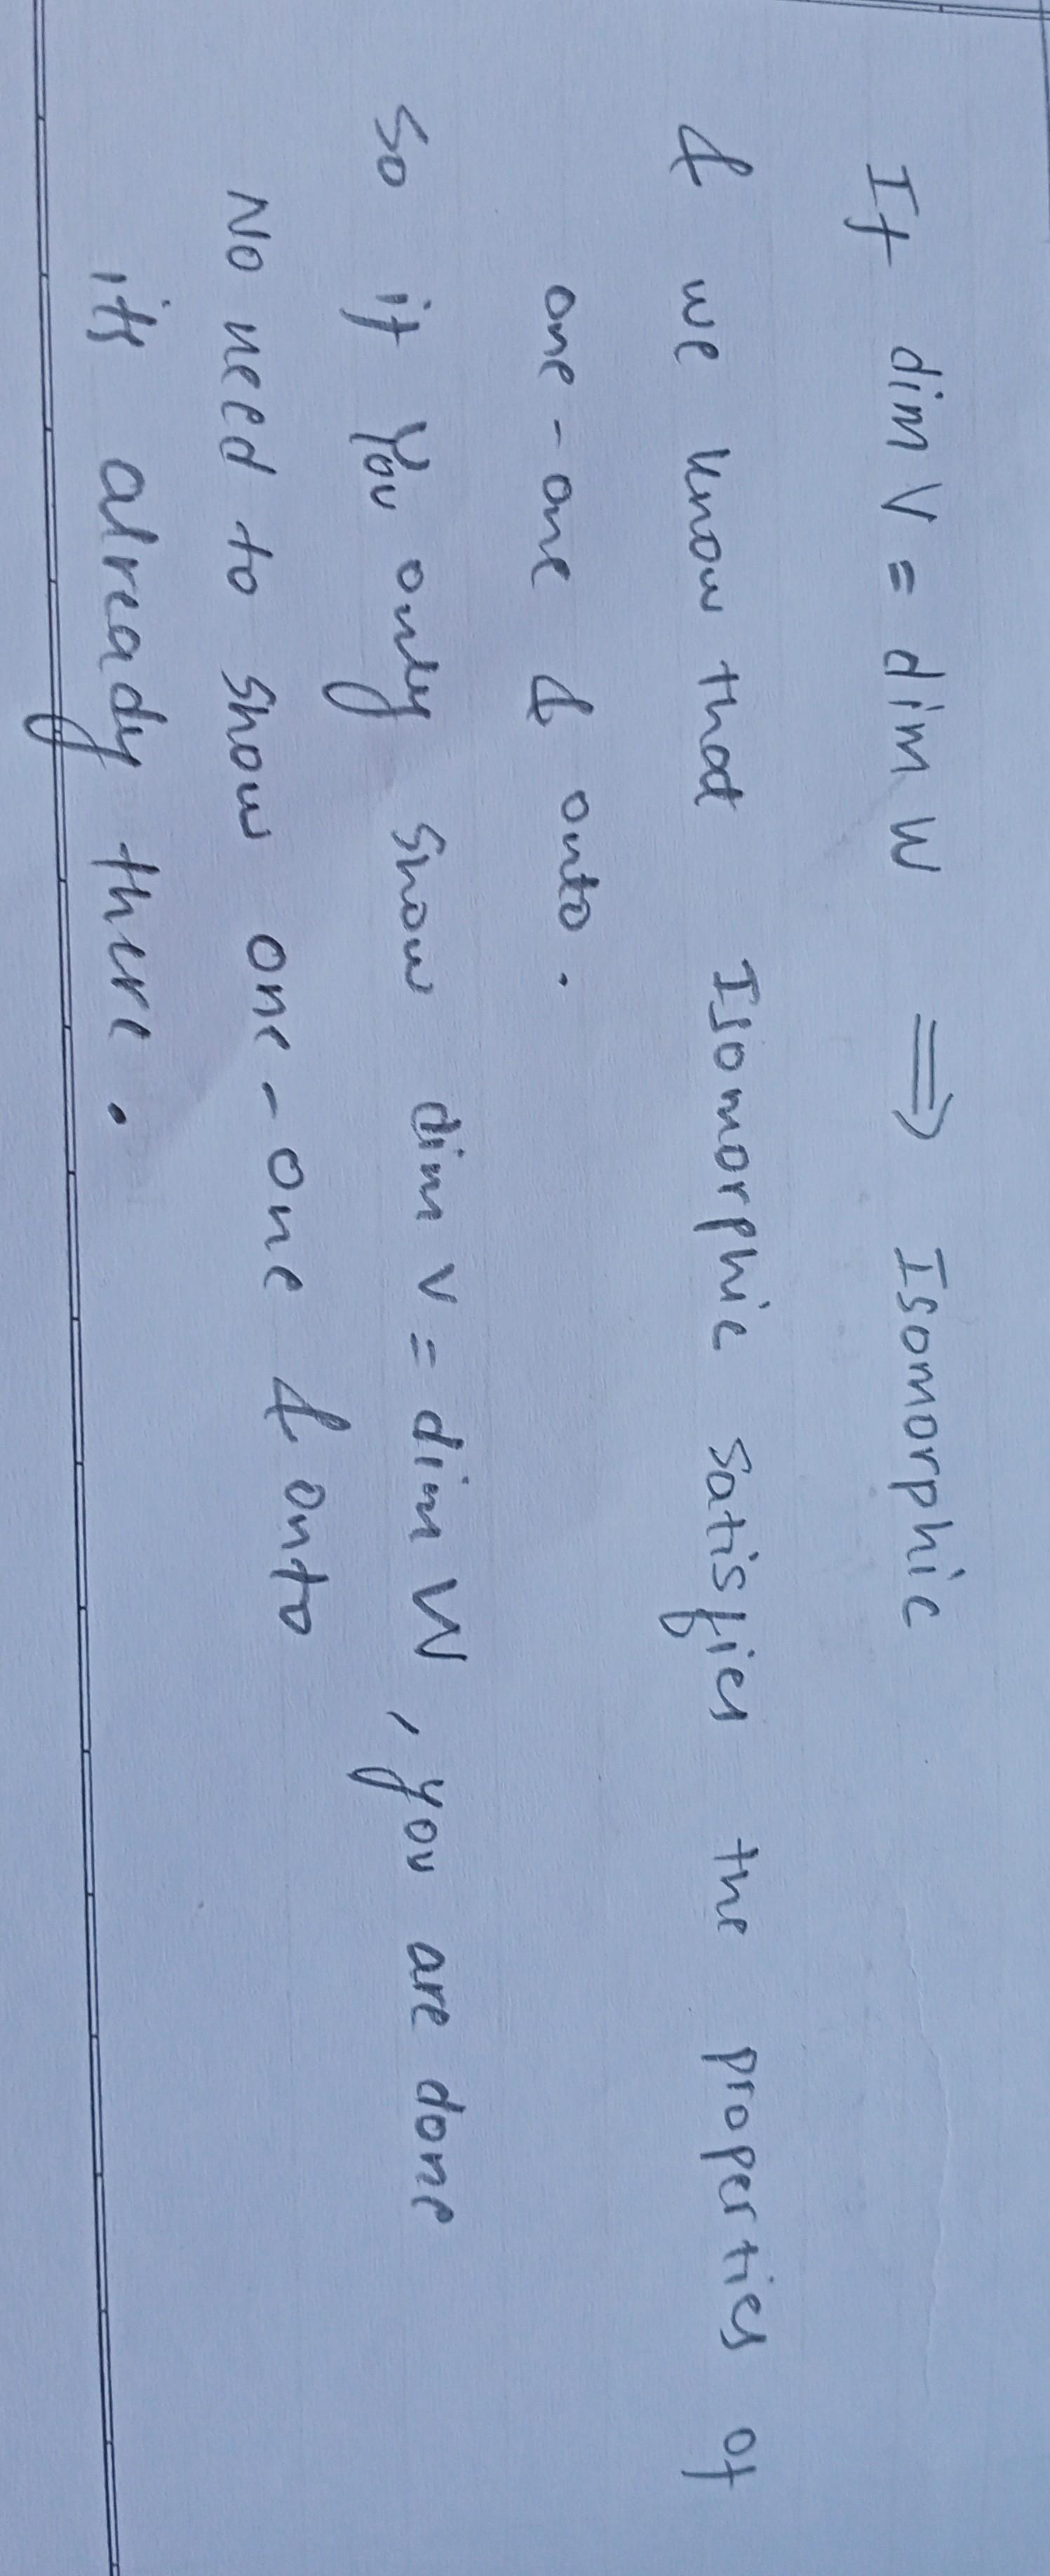 If dim V = dim W ⟹ Isomorphic
& we know that Isomorphic satisfies the properties of
one-one & onto.
So if you only show dim V = dim W, you are done
No need to show one-one & onto
its already there.